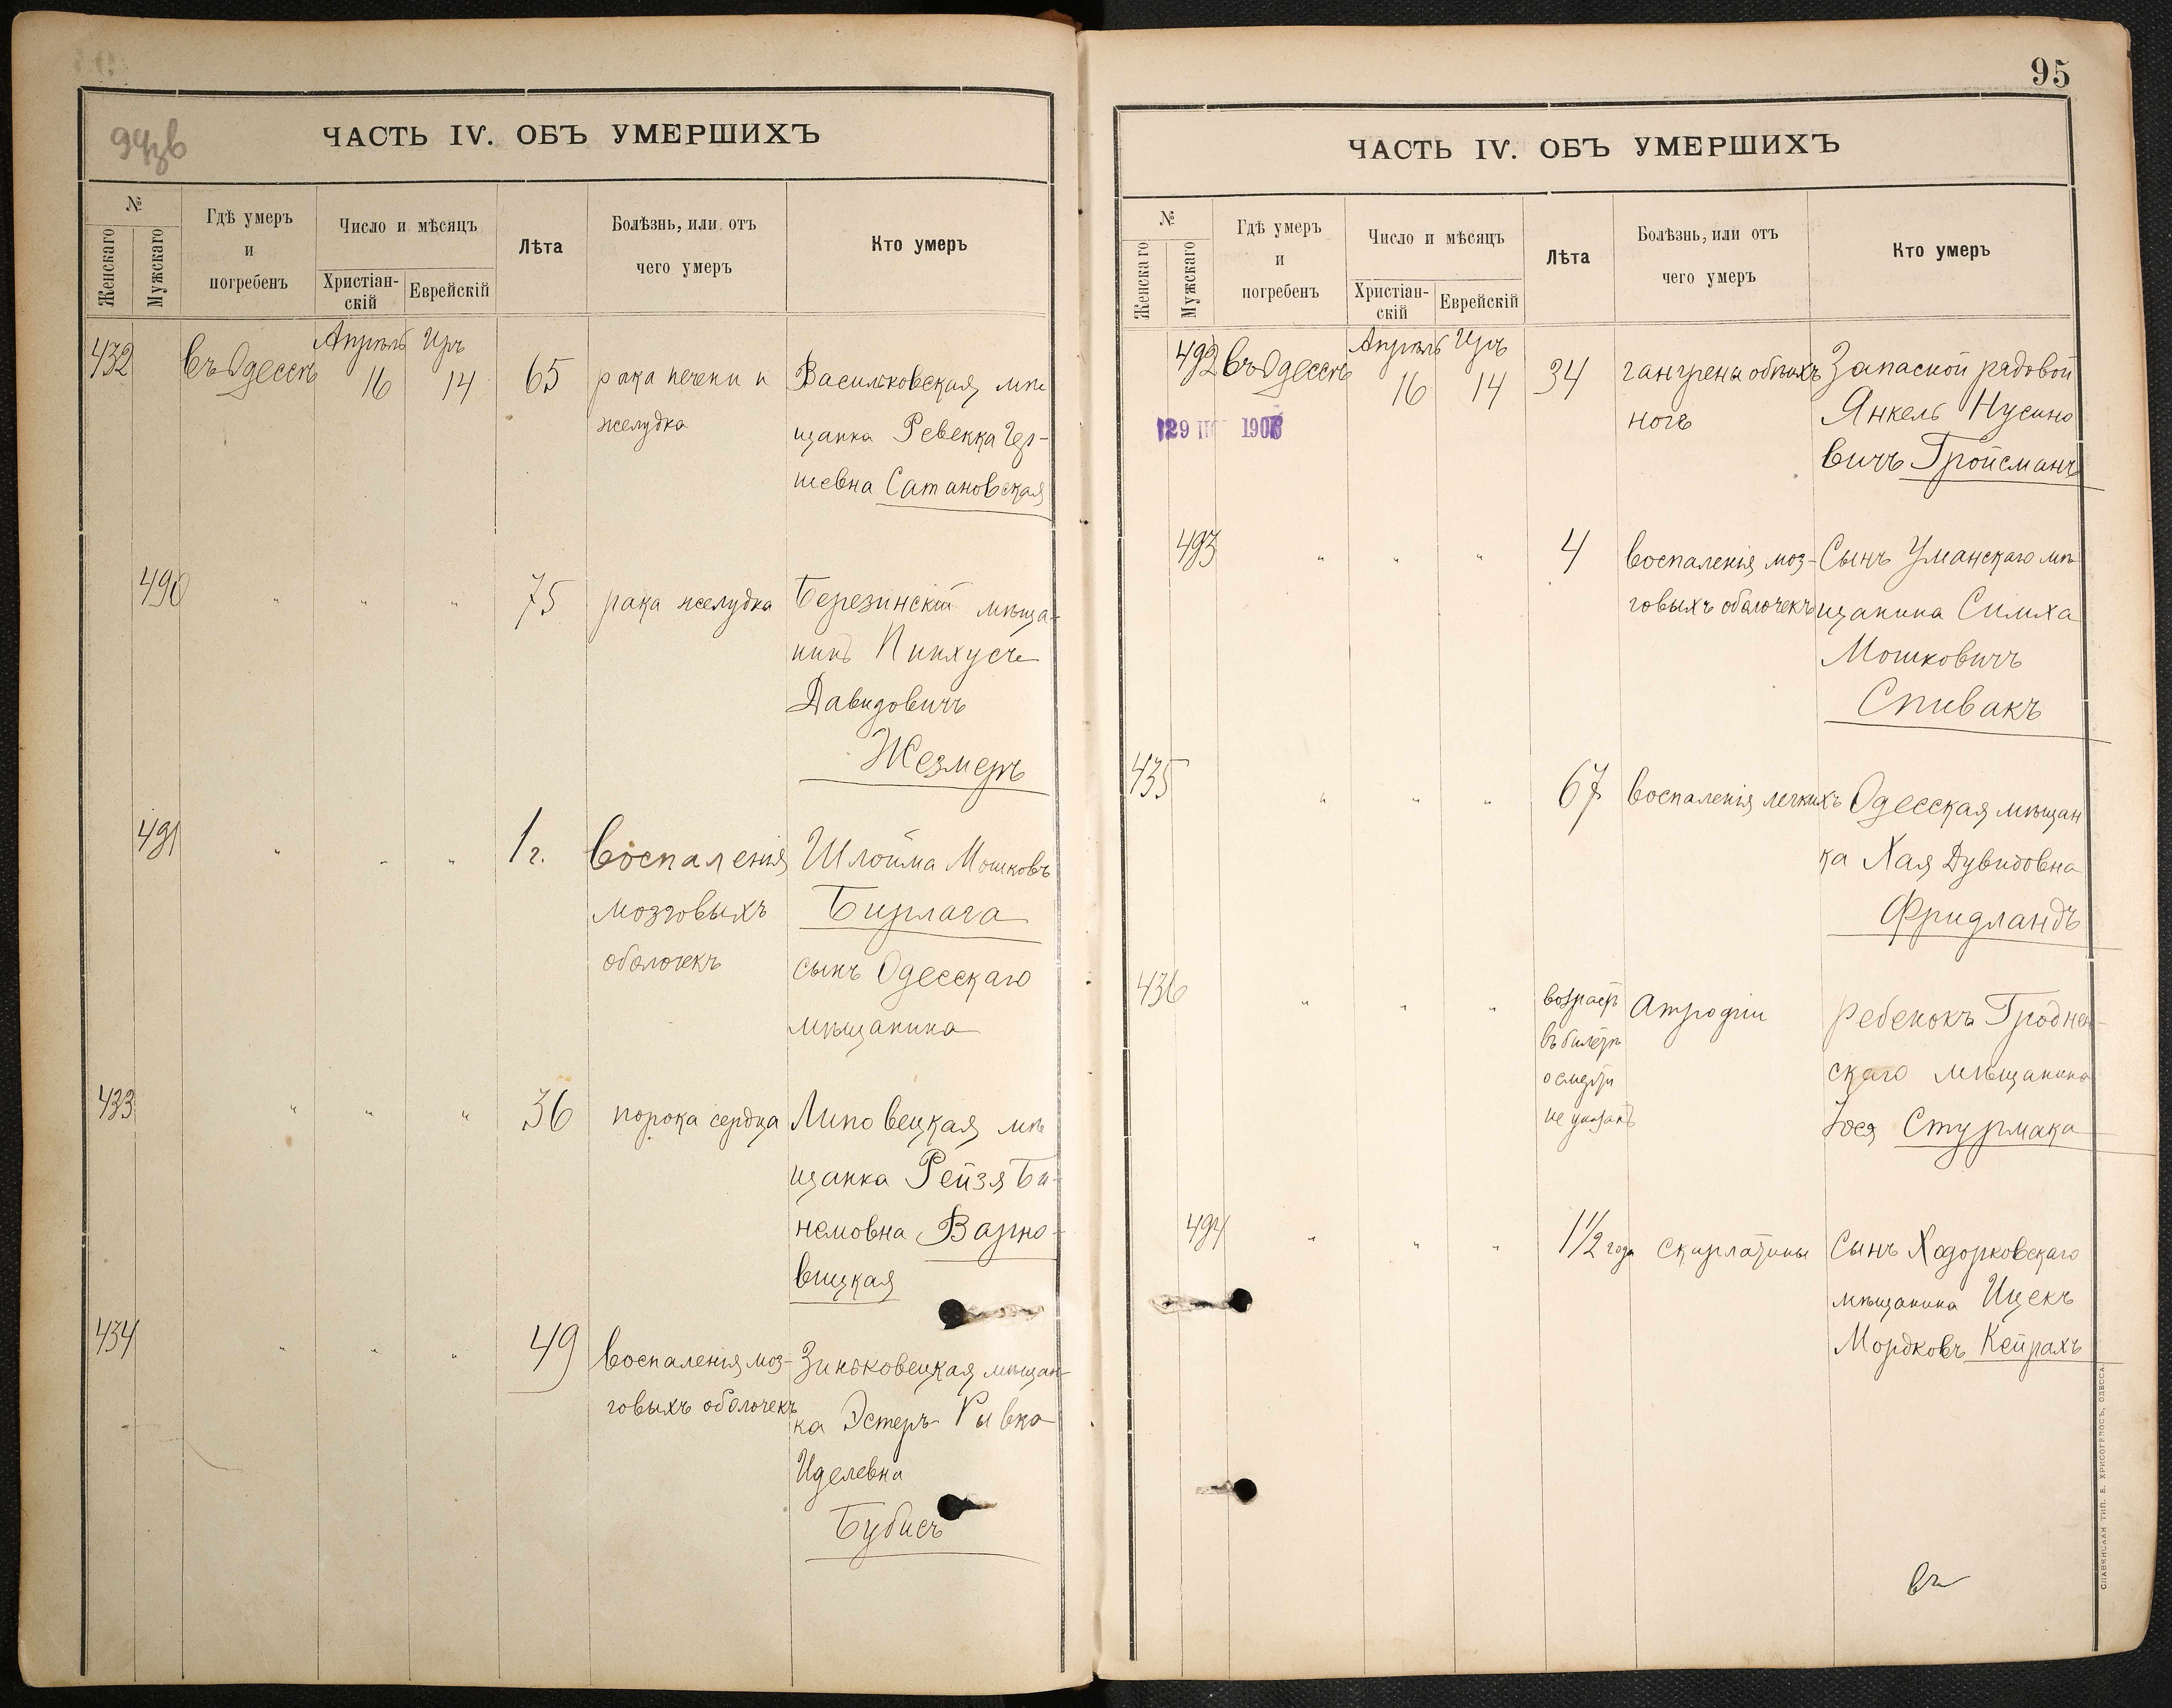 ЧАСТЬ IV. ОБЪ УМЕРШИХЪ
№
Женскаго
Мужскаго
Гдѣ умеръ
и
погребенъ
Число и мѣсяцъ
Христіан-
скій
Еврейскій
Лѣта
Болѣзнь, или отъ
чего умеръ
Кто умеръ
432 въ Одессѣ Апрѣль 16 Иръ 14 65 рака печени и Васильковская мѣ
желудка щанка Ревекка Гер-
шевна Сатановская
490 " " " 75 рака желудка Березинскій мѣща-
нинъ Пинхусъ
Давидовичъ
Жезмеръ
491 " " " 1 г. воспаленія Шлойма Мошковъ
мозговыхъ Бирлага
оболочекъ сынъ Одесскаго
мѣщанина
433 " " " 36 порока сердца Липовецкая мѣ
щанка Рейзя Би-
немовна Варно-
вицкая
434 " " " 49 воспаленія моз- Зиньковецкая мѣщан-
говыхъ оболочекъ ка Эстеръ Рывка
Иделевна
Бубисъ
95
ЧАСТЬ IV. ОБЪ УМЕРШИХЪ
№
Женскаго
Мужскаго
Гдѣ умеръ
и
погребенъ
Число и мѣсяцъ
Христіан-
скій
Еврейскій
Лѣта
Болѣзнь, или отъ
чего умеръ
Кто умеръ
492 въ Одессѣ Апрѣль 16 Иръ 14 34 гангрены обѣихъ Запасной рядовой
ногъ Янкель Нусино
вичъ Гройсманъ
493 " " " 4 воспаленія моз- Сынъ Уманскаго мѣ
говыхъ оболочекъ щанина Симха
Мошковичъ
Спивакъ
435 " " " 67 воспаленія легкихъ Одесская мѣщан
ка Хая Дувидовна
Фридландъ
436 " " " возрастъ Атрофіи Ребенокъ Гроднен-
въ билетѣ скаго мѣщанина
о смерти
не указанъ Іося Стурмака
494 " " " 1½ года скарлатины Сынъ Ходорковскаго
мѣщанина Ицекъ
Мордковъ Кейрахъ
СЛАВЯНСКАЯ ТИП. Е. ХРИСОГЕЛОСЪ, ОДЕССА.